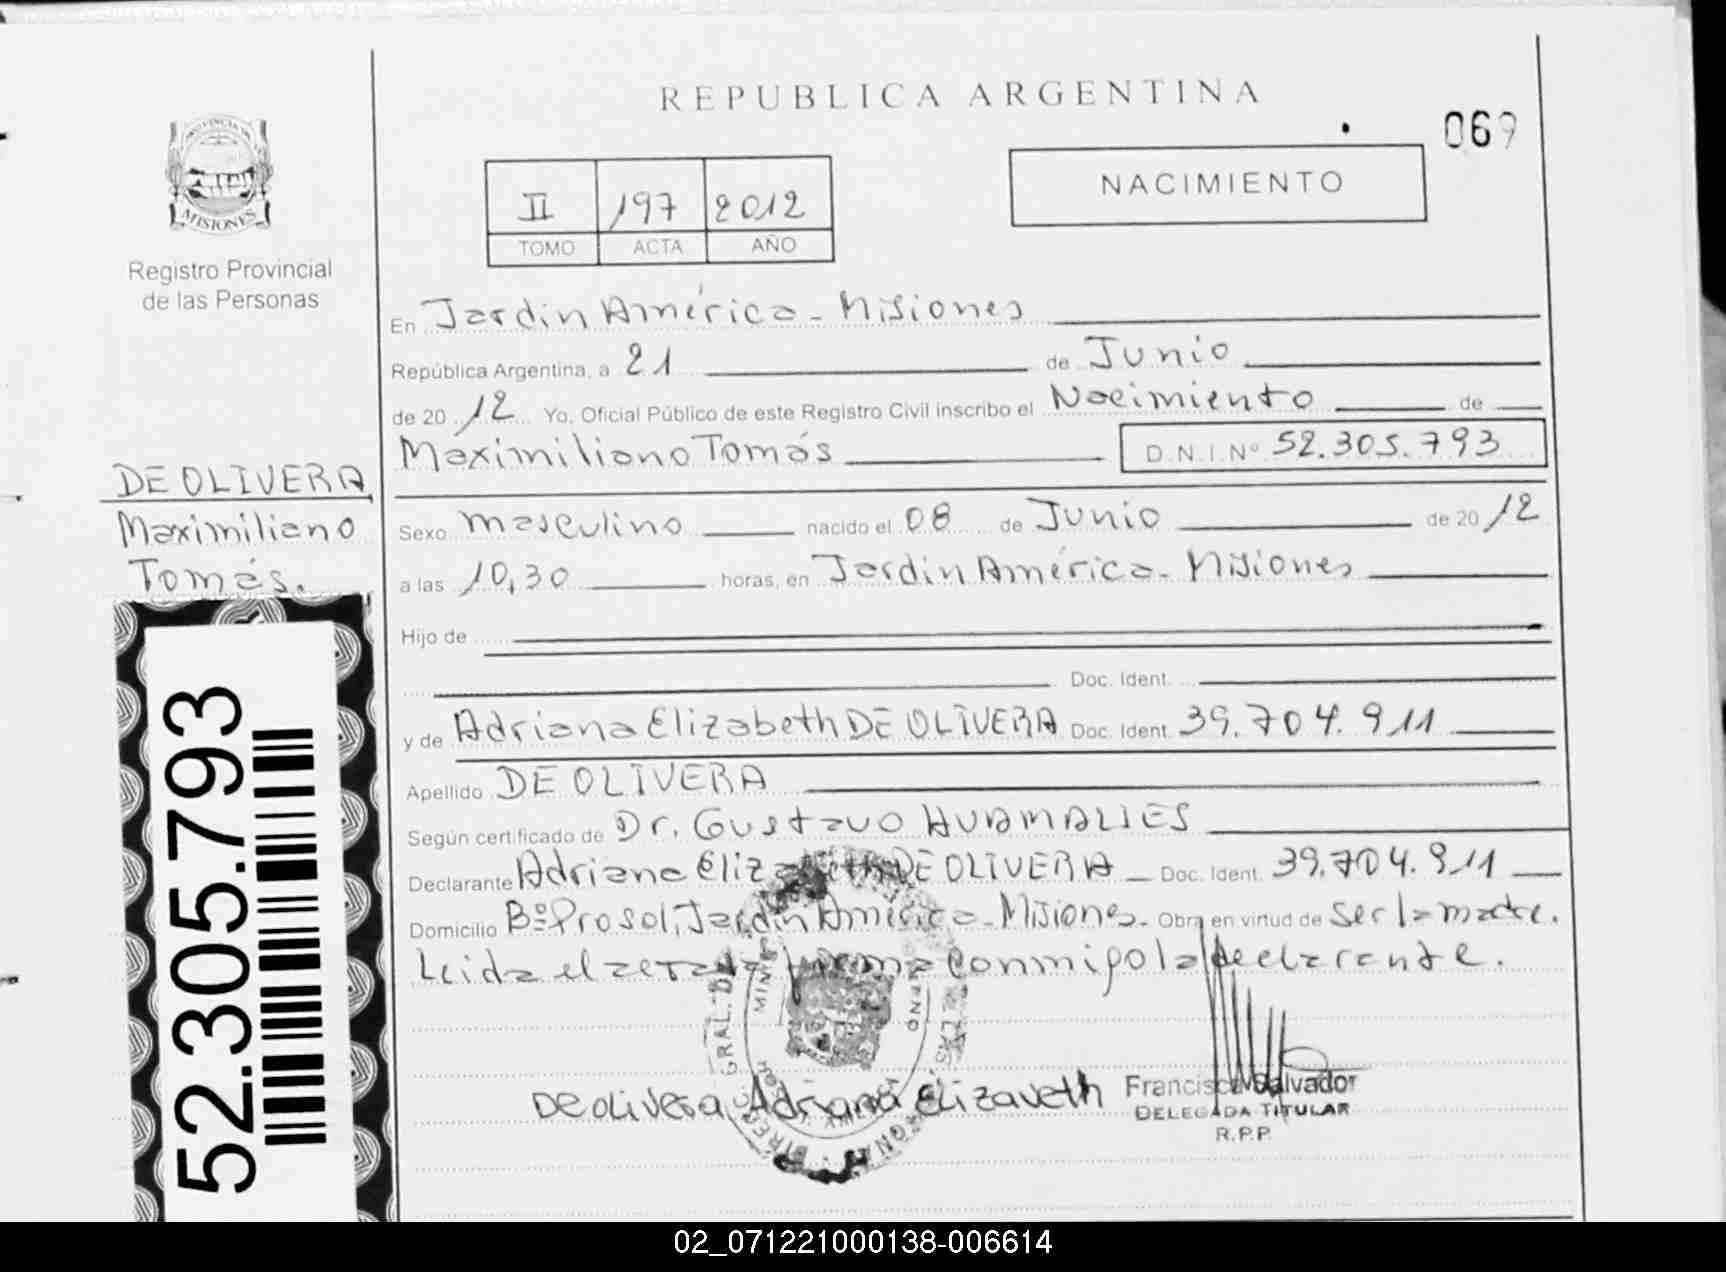 REPUBLICA ARGENTINA
069
PROVINCIA DE
MISIONES
Registro Provincial
de las Personas
II 197 2012
TOMO ACTA AÑO
NACIMIENTO
En Jardin América - Misiones
República Argentina, a 21 de Junio
de 20 12 Yo, Oficial Público de este Registro Civil inscribo el Nacimiento de
Maximiliano Tomás D.N.I. Nº 52.305.793
DE OLIVERA
Maximiliano
Tomás.
Sexo masculino nacido el 08 de Junio de 20 12
a las 10,30 horas, en Jardin América - Misiones
Hijo de
Doc. Ident.
y de Adriana Elizabeth DE OLIVERA Doc. Ident. 39.704.911
Apellido DE OLIVERA
Según certificado de Dr. Gustavo HUAMALIES
Declarante Adriana Elizabeth DE OLIVERA Doc. Ident. 39.704.911
Domicilio Bº Prosol, Jardin América - Misiones - Obra en virtud de ser la madre.
Leida el acta firma conmigo la declarante.
De olivera Adriana Elizaveth
Francisca Salvador
DELEGADA TITULAR
R.P.P.
52.305.793
02_071221000138-006614